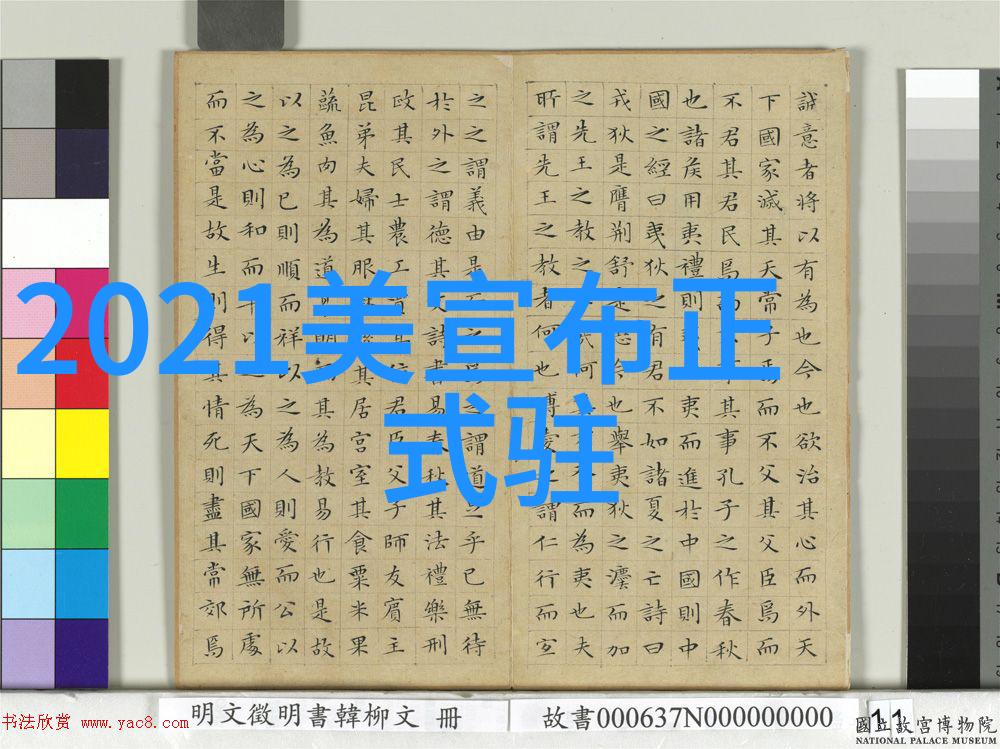 2021美宣布正
式驻
誠意者將以有為也今也欲治其心而外天
下國家滅其天常子焉而不父其父臣焉而
不君其君民焉其事孔子之作春秋
也諸侯用夷禮則夷而進於中國則中
國之經曰夷狄之有君不如諸夏之亡詩曰
戎狄是膺荊舒是也舉夷狄之灋而加
之先王之教之何而為夷也夫
所謂先王之教者何也博愛之謂仁行而宜
之之謂義由是之謂道乎已無待
於外之謂德其文詩書易春秋其法禮樂刑
政其民士農工賈其位君臣父子師友賓主
昆弟夫婦其服其居宮室其食粟米果
蔬魚肉其為道明其為教易行也是故
以之為已則順而祥以之為人則愛而公以
之為心則和而平以為天下國家無所處
而不當是故生則得其情死則盡其常郊焉
明文徵明書韓柳文 冊
故書000637N000000000
11
書法欣赏 www.yac8.com
國立故宮博物院
NATIONAL PALACE MUSEUM